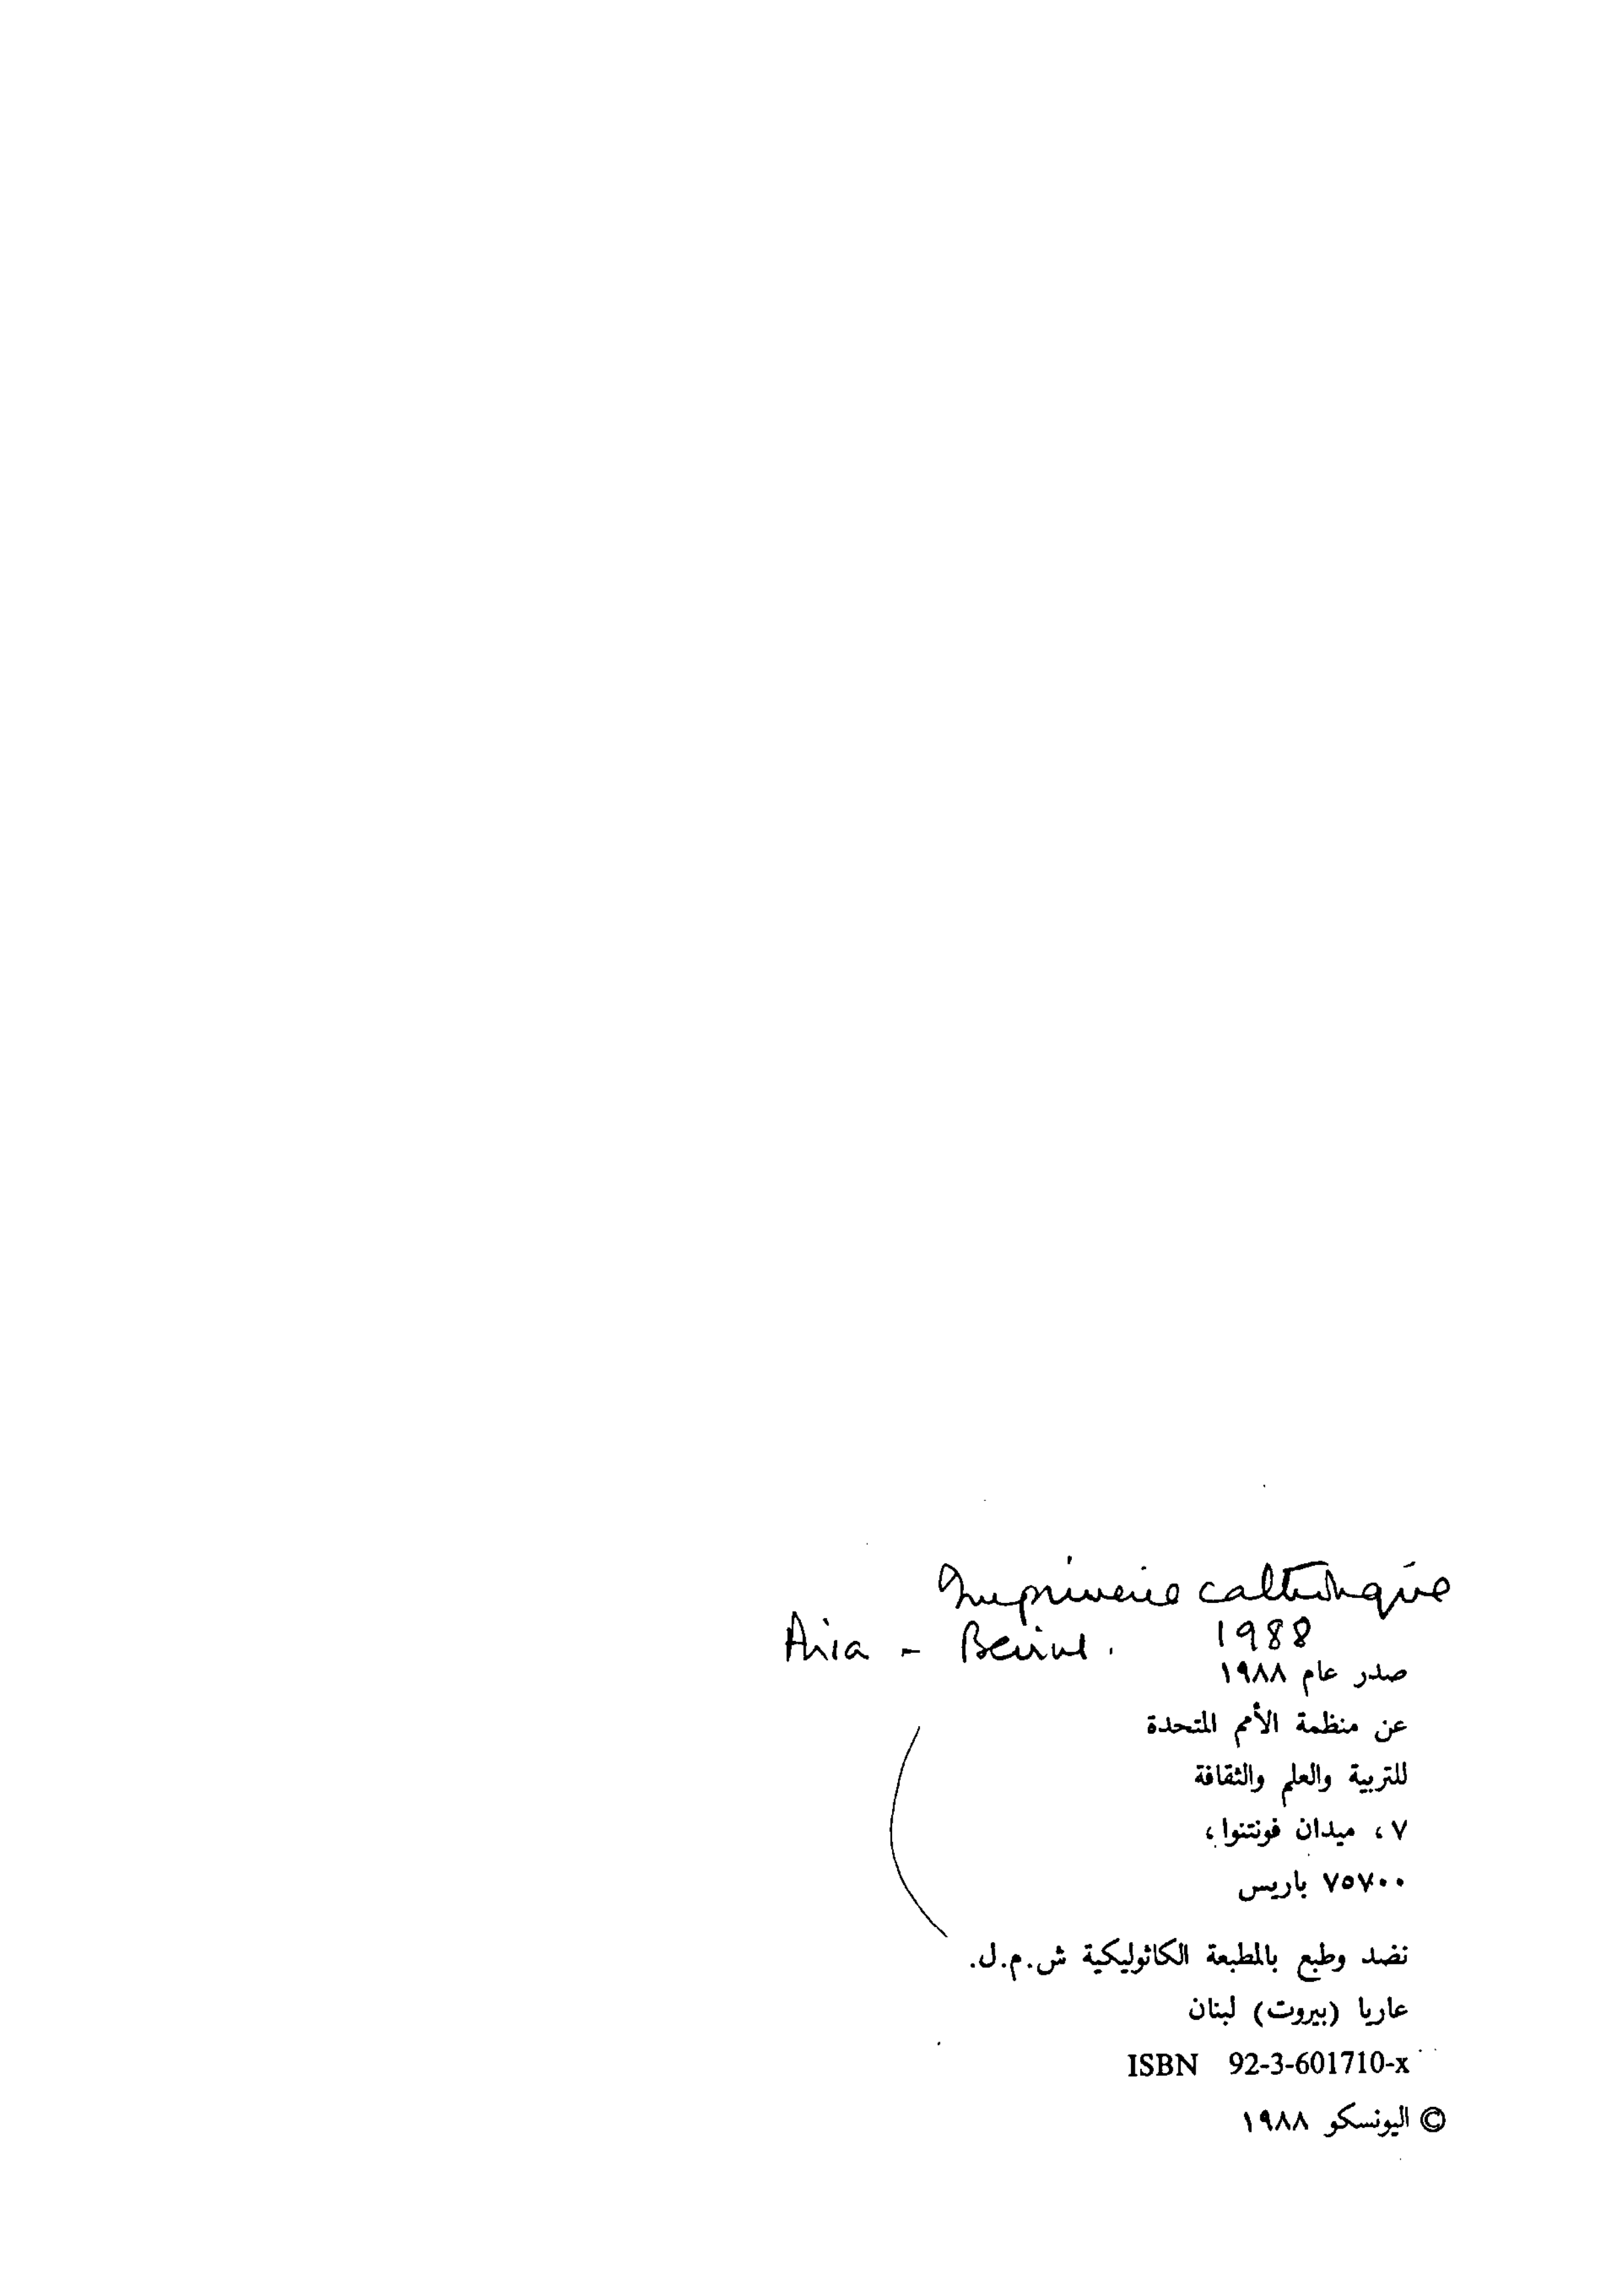 Imprimerie catholique
Aria - Beirut. 1988
صدر عام ١٩٨٨
عن منظمة الأمم المتحدة
للتربية والعلم والثقافة
٧ ، ميدان فونتنوا ،
٧٥٧٠٠ باريس
نضد وطبع بالمطبعة الكاثوليكية ش.م.ل.
عاريا (بيروت) لبنان
ISBN 92-3-601710-x
© اليونسكو ١٩٨٨